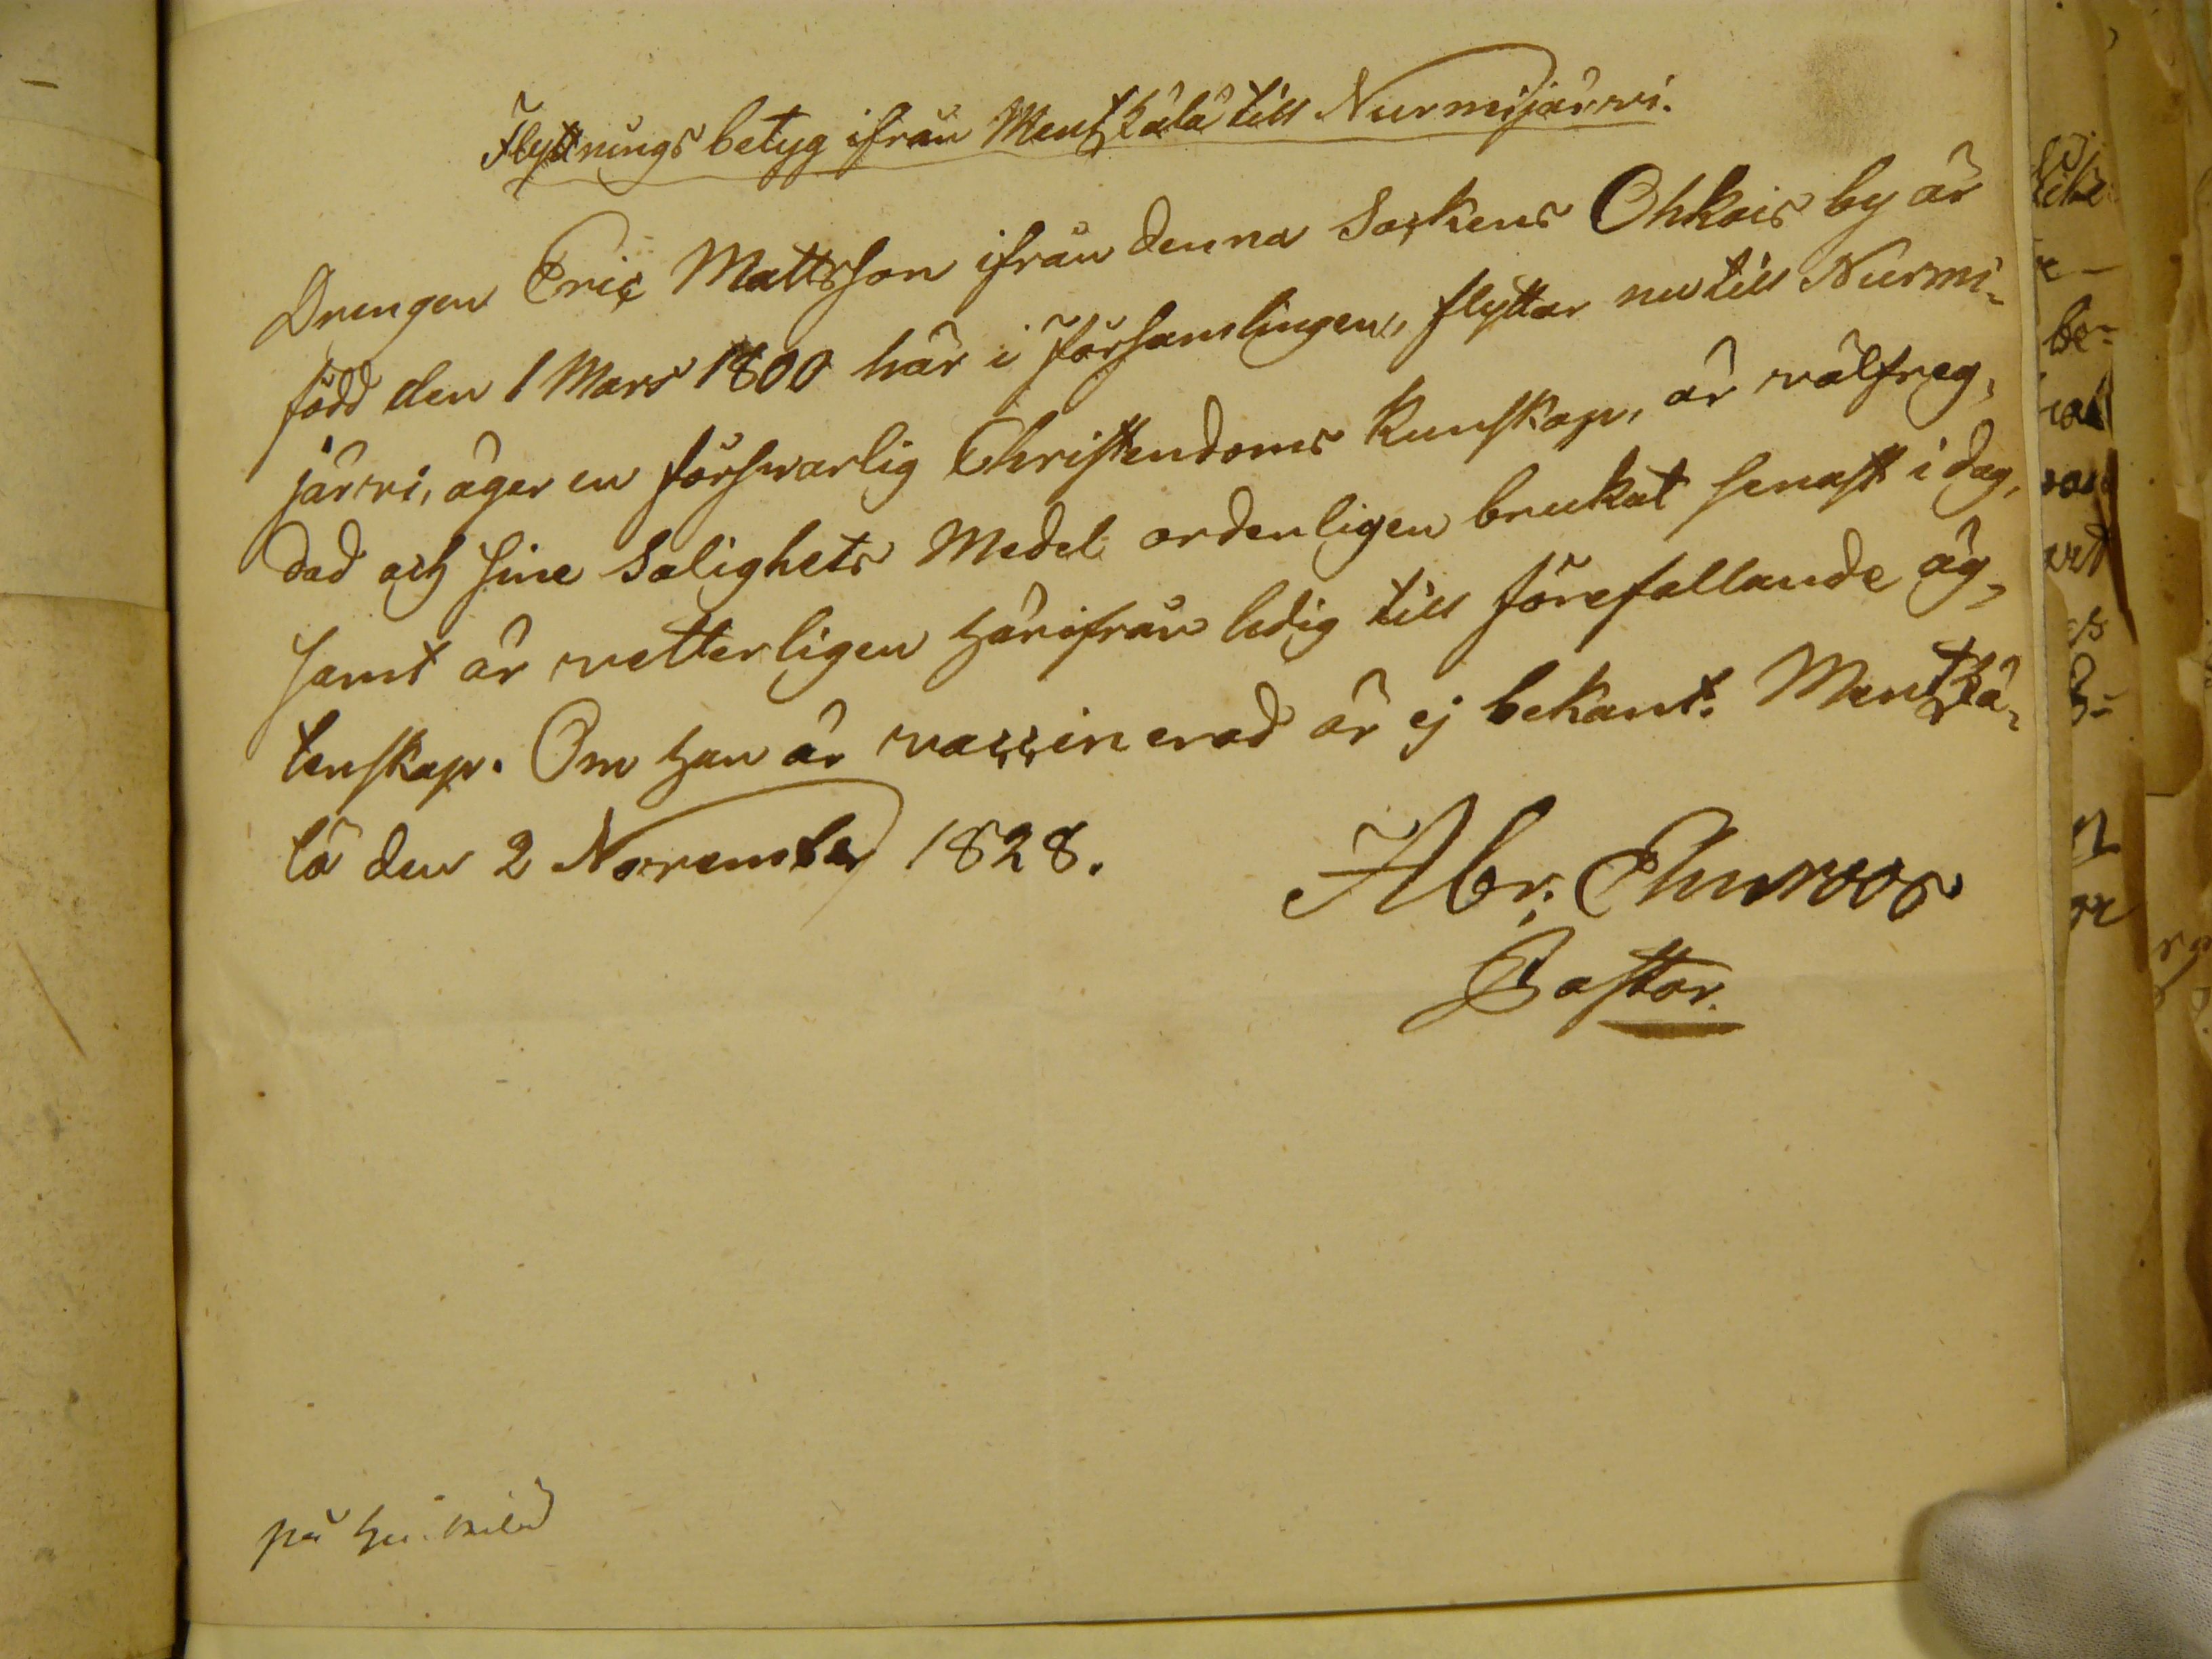 Flyttnings betyg ifrån Mentzälä till Nurmijärvi.
Drengen Eric Mattsson ifrån denna Sockens Ohkois by är
född den 1 Mars 1800 här i församlingen, flyttar nu till Nurmi-
järvi, äger en försvarlig Christendoms kunskap, är välfreg,
dad och sine Salighets Medel ordenligen brukat senast i dag,
samt är vetterligen härifrån ledig till förefallande äg,
tenskap. Om han är vaccinerad är ej bekant. Mentzä-
lä den 2 November 1828.
Abr:
Pastor.
på